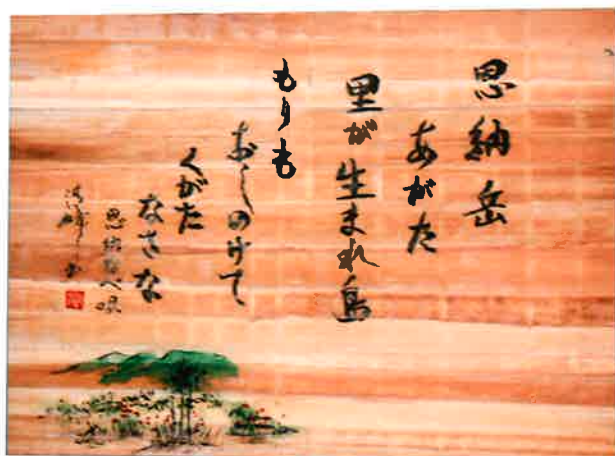 恩納岳
あがた
里が生まれ島
もりも
おしのけて
くがた
なさな
恩納